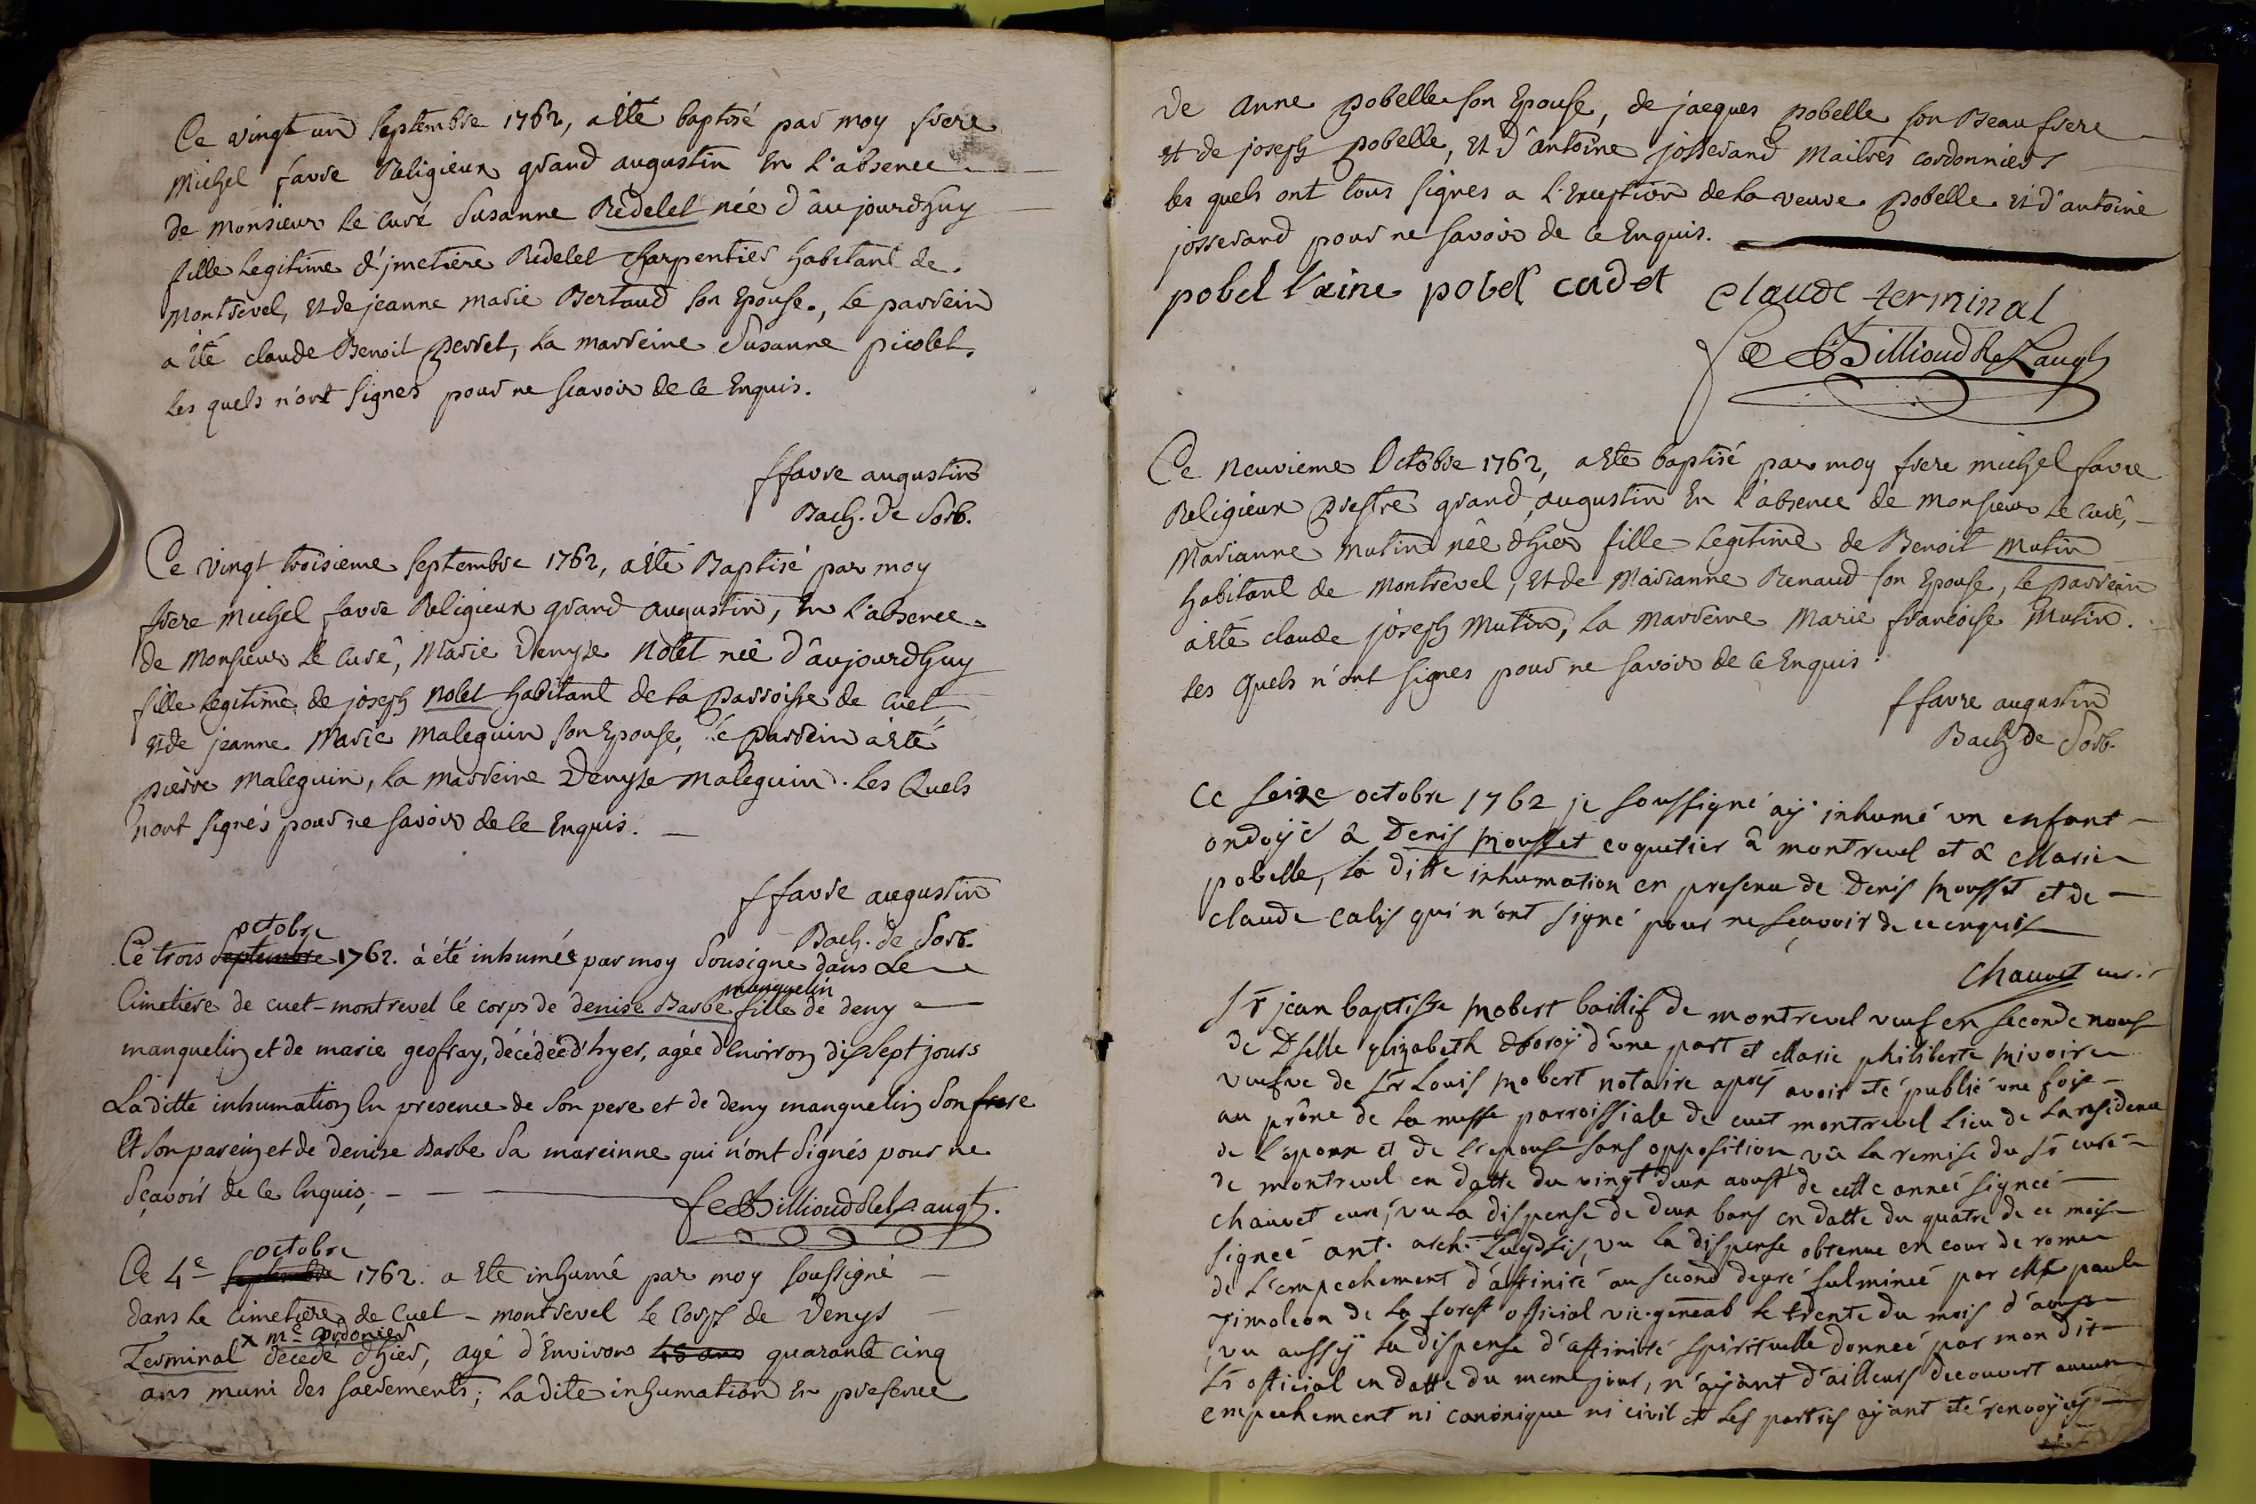 Ce vingt un septembre 1762, a Eté baptisé par moy frere
Michel favre Religieux grand augustin En l'absence
de Monsieur Le Curé Susanne Redelet née d'aujourdhuy
fille Legitime d' Redelet charpentier habitant de
Montrevel, Et de jeanne marie Bertaud son Epouse, Le parrein
a Eté claude Benoit perret, La marreine Susanne picolet,
Les quels n'ont signés pour ne scavoir de ce Enquis.
f favre augustin
Bach. de Sorb.
Ce vingt troisieme septembre 1762, a Eté Baptisé par moy
frere Michel favre Religieux grand augustin, En l'absence
de Monsieur Le Curé, Marie Denyse Nolet née d'aujourdhuy
fille Legitime de joseph Nolet habitant de La parroisse de Cuet
Et de jeanne Marie Maleguin son Epouse, Le parrein a Eté
pierre Maleguin, La marreine Denyse Maleguin. Les Quels
n'ont signés pour ne savoir de ce Enquis.
f favre augustin
Bach. de Sorb.
octobre
Ce trois septembre 1762. à été inhumée par moy Sousigne dans Le
Cimetiere de cuet-montrevel le corps de denise Barbe manguelin fille de deny
manguelin et de marie geofray, décédée d'hyer, agée d'Environ dixsept jours
La ditte inhumation En presence de Son pere et de deny manguelin Son frere
Et Son parein et de denise Barbe Sa mareinne qui n'ont Signés pour ne
Sçavoir de Ce Enquis.
fe Billioud augt.
octobre
Ce 4e septembre 1762. a Eté inhumé par moy soussigné
dans Le Cimetiere de Cuet - montrevel Le Corps de Denys
Terminal x me Cordonier decedé d'hier, agé d'Environ 45 ans quarante cinq
ans muni des sacrements; La dite inhumation En presence
de Anne pobelle son Epouse, de jacques pobelle son Beaufrere
et de joseph pobelle, Et d'antoine josserand Maitres cordonniers
les quels ont tous signes a l'Exception de La veuve pobelle Et d'antoine
josserand pour ne savoir de ce Enquis.
pobel l'aine pobel cadet claude terminal
fe Billioud augt
Ce Neuvieme Octobre 1762, a Eté baptisé par moy frere michel favre
Religieux prestre grand augustin En l'absence de Monsieur Le Curé,
Marianne Mutin née d'hier fille Legitime de Benoit Mutin
habitant de Montrevel, Et de Marianne Renaud son Epouse, Le parrein
a Eté claude joseph Mutin, La Marreine Marie francoise Mutin.
Les Quels n'ont signes pour ne savoir de ce Enquis.
f favre augustin
Bach de Sorb.
Ce seize octobre 1762 je soussigné ay inhumé un enfant
ondoyé à Denis Mousset coquetier à montrevel et à Marie
pobelle, la ditte inhumation en presence de Denis Mousset et de
claude calis qui n'ont signé pour ne sçavoir de ce enquis
Chauvet curé
Sr jean baptiste Mobert baillif de montrevel veuf en seconde nous
de Dselle Elizabeth d'une part et Marie philiberte Mivoire
veufve de Sr Louis Mobert notaire après avoir eté publié une fois
au prône de la messe parroissiale de cuet montrevel Lieu de La residence
de l'epoux et de l'epouse sans opposition vû La remise du Sr curé
de montrevel en datte du vingt deux aoust de cette année signée
Chauvet curé, vu La dispense de deux bans en datte du quatre de ce mois
signée ant. arch. Lugd, vu la dispense obtenue en cour de rome
de l'empechement d'affinité au second degré fulminée par Mre paule
Timoleon de la forest official vic. géneal le trente du mois d'aoust
vu aussy La dispense d'affinité spirituelle donnée par mon dit
Sr official en datte du meme jour, n'ayant d'ailleurs decouvert aucun
empechement ni canonique ni civil et Les parties ayant eté renvoyées